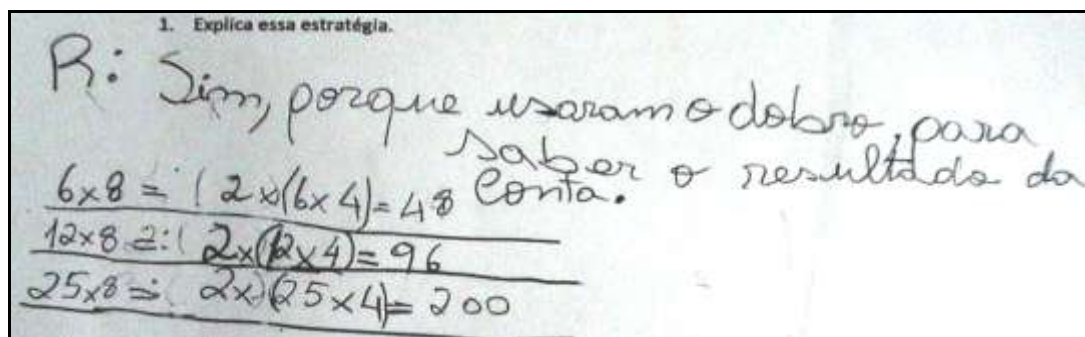 1. Explica essa estratégia.
R: Sim, porque usaram o dobro, para
saber o resultado da
conta.
6x8 = 2x(6x4)=48
12x8 = 2x(12x4)=96
25x8 = 2x(25x4)=200